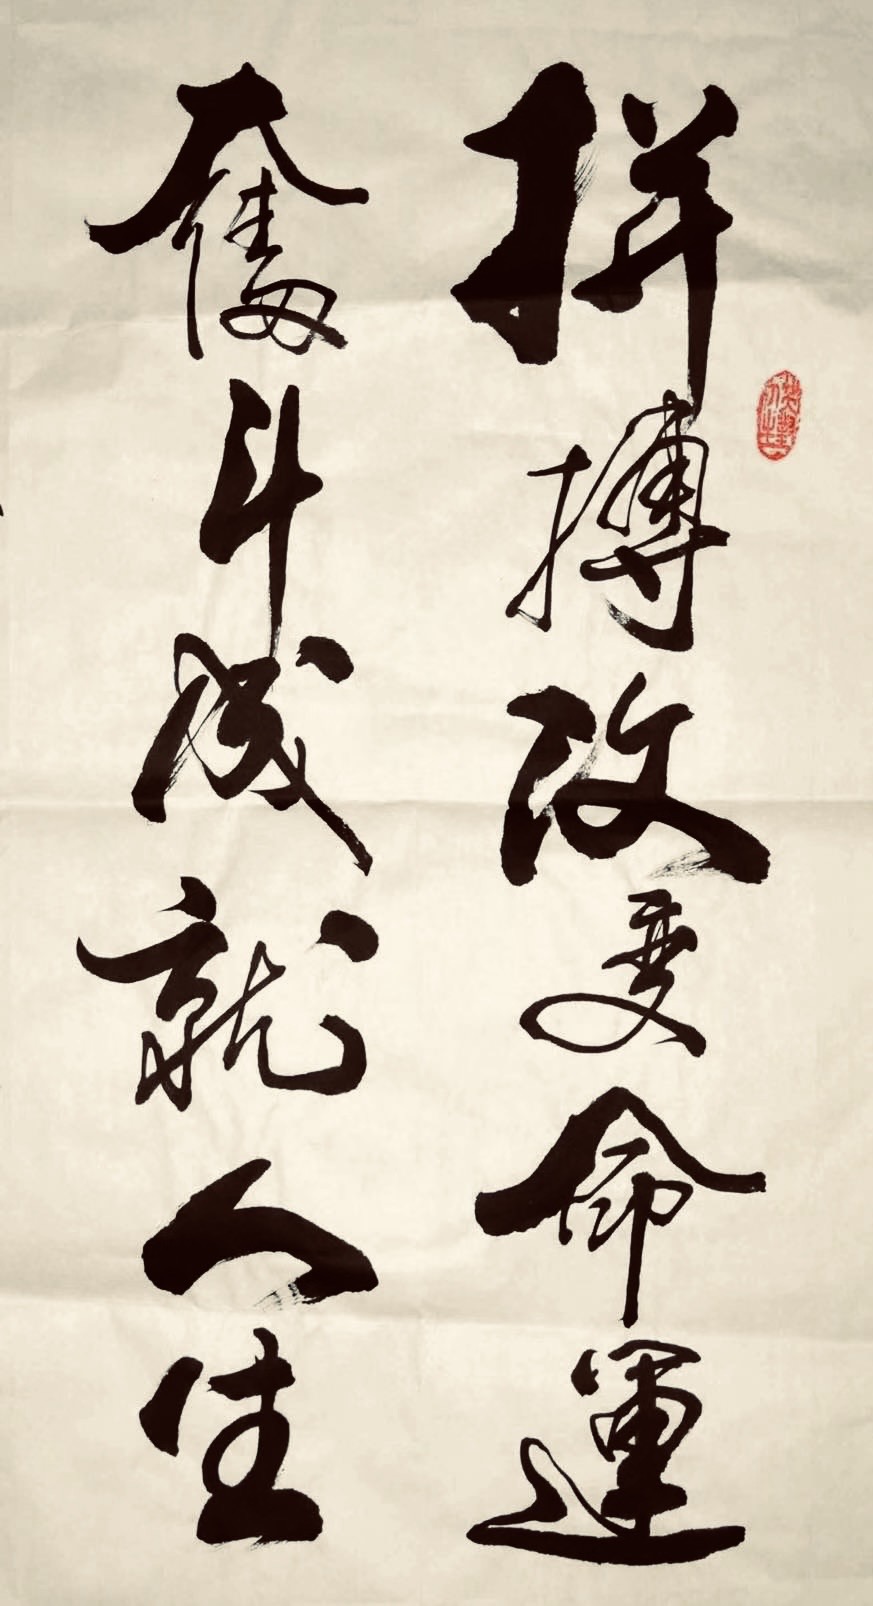 拼搏改变命運
奮斗成就人生